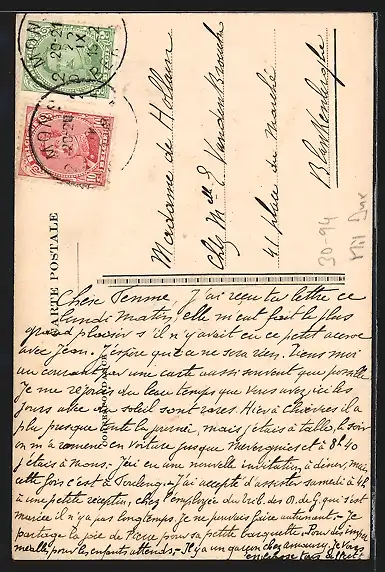 MONS
20-21
IX
MONS
20-21
10
CARTE POSTALE
CORRESPONDANCE
Madame de Hollain
Chez Mlle E. Vanden Broucke
41 place du Marché
Blankenberghe
30-94
Mil Dux
Chère Femme, j'ai reçu ta lettre ce
lundi matin, elle m'eut fait le plus
grand plaisir s'il n'y avait eu ce petit
avec Jean. J'espère que ce ne sera rien. Tiens moi
au courant par une carte aussi souvent que possible
Je me réjouis du beau temps que vous avez, ici les
jours avec du soleil sont rares. Hier à Chièvres il a
plu presque toute la journée, mais j'étais à table, le soir
on m'a ramené en voiture jusque Mévergnies et à 8h40
j'étais à Mons. J'ai eu une nouvelle invitation à dîner, mais
cette fois c'est à J'ai accepté d'assister samedi à 4h
à une petite réception, chez l'employée du trib. des D. de G. qui s'est
mariée il n'y a pas longtemps je ne pouvais faire autrement. Je
partage la joie de Pierre pour sa petite barquette.
pour les enfants attends. Il y a un garçon chez